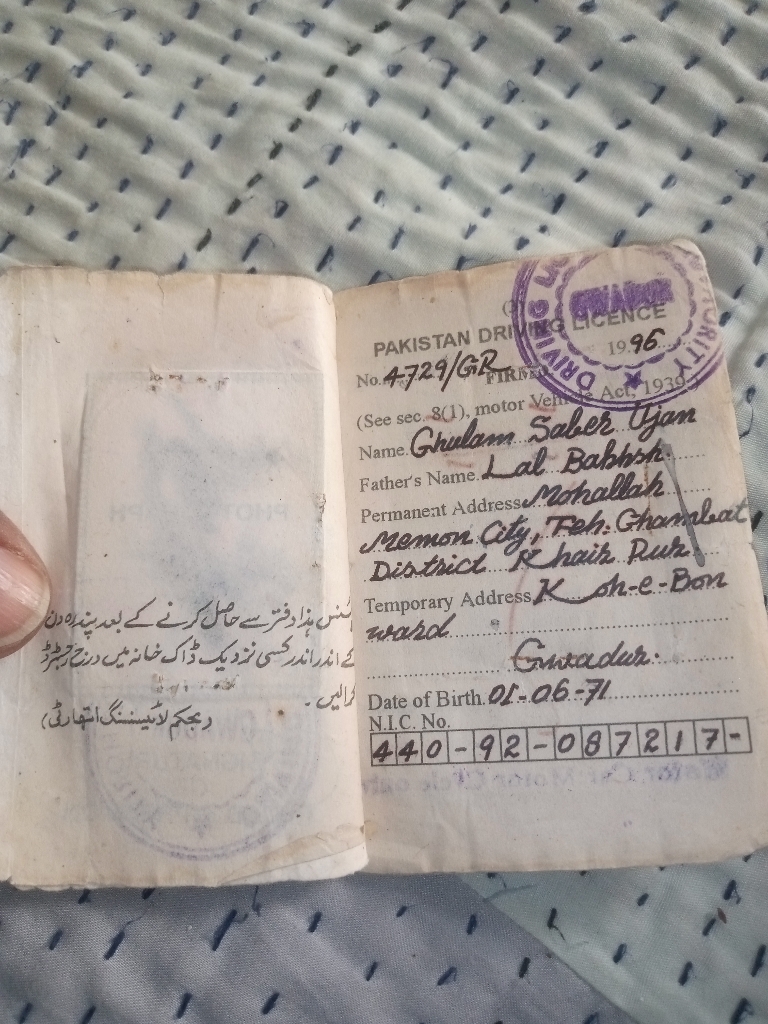 لائسنس ہذا دفتر سے حاصل کرنے کے بعد پندرہ دن
کے اندر اندر کسی نزدیک ڈاک خانہ میں درج رجسٹرڈ
کرالیں -
(بحکم لائیسنسنگ اتھارٹی)
(3)
PAKISTAN DRIVING LICENCE
No. 4729/GR 1996
(See sec. 8(1), motor Vehicle Act, 1939.)
Name. Ghulam Saber Ujan
Father's Name. Lal Bakhsh.
Permanent Address Mohallah
Memon City, Teh. Ghambat
District Khair Pur.
Temporary Address Koh-e-Bon
ward
Gwadur.
Date of Birth. 01-06-71
N.I.C. No.
440-92-087217-
DRIVING LICENSING AUTHORITY
GWADUR